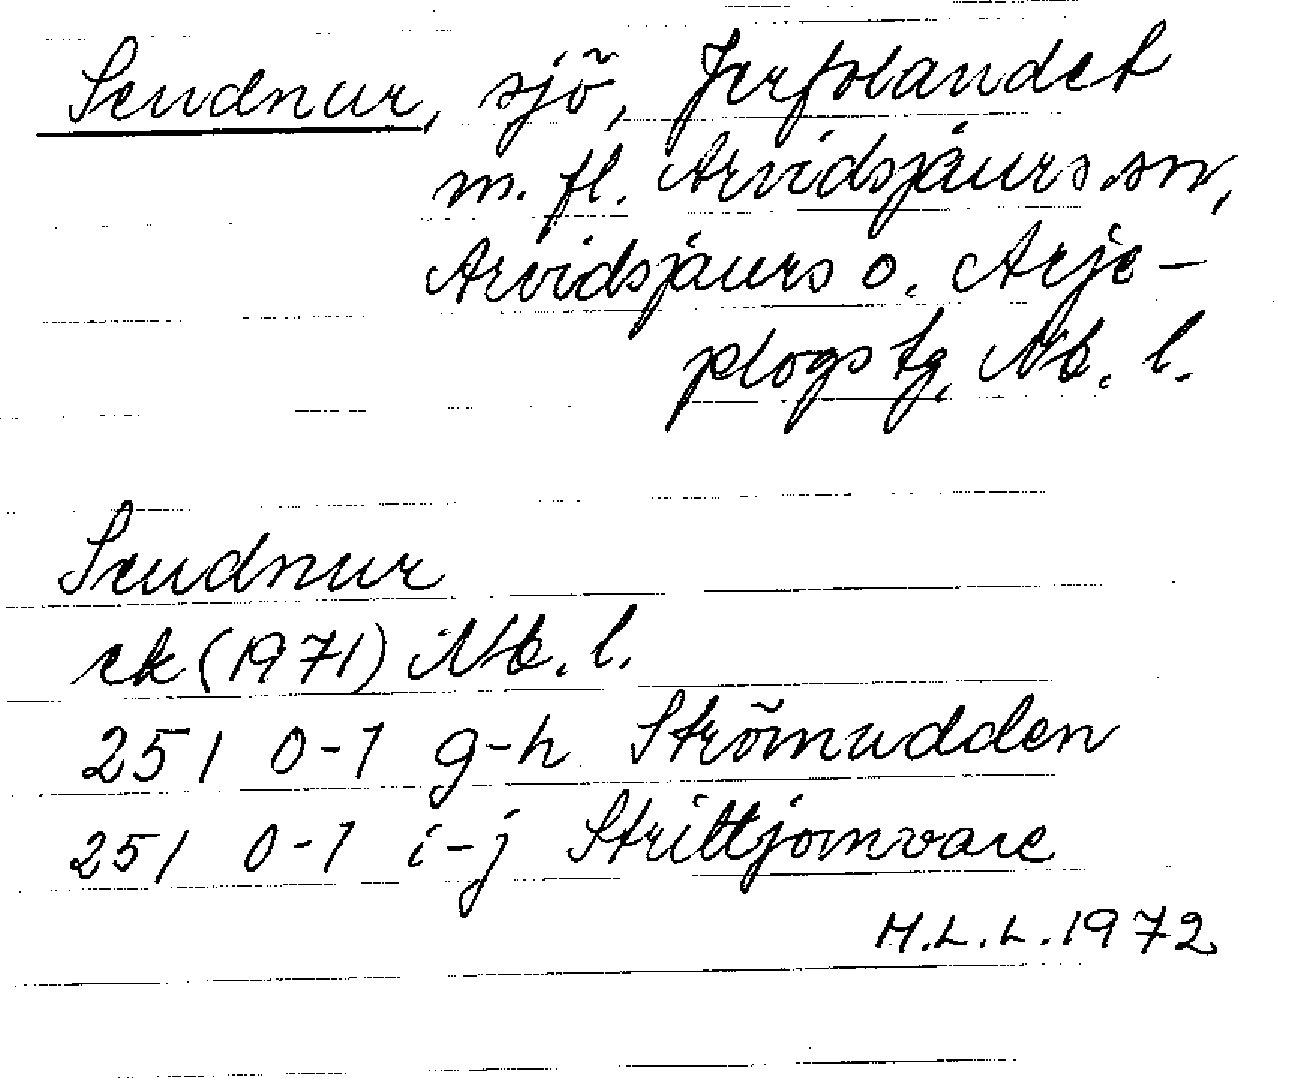 Seudnur, sjö, Jerfolandet
m. fl. Arvidsjaurs sn,
Arvidsjaurs o. Arje-
plogs tg, Nb. l.
Seudnur
ek (1971) Nb. l.
25I 0-1 g-h Strömudden
25I 0-1 i-j Strittjomvare
H.L.L. 1972